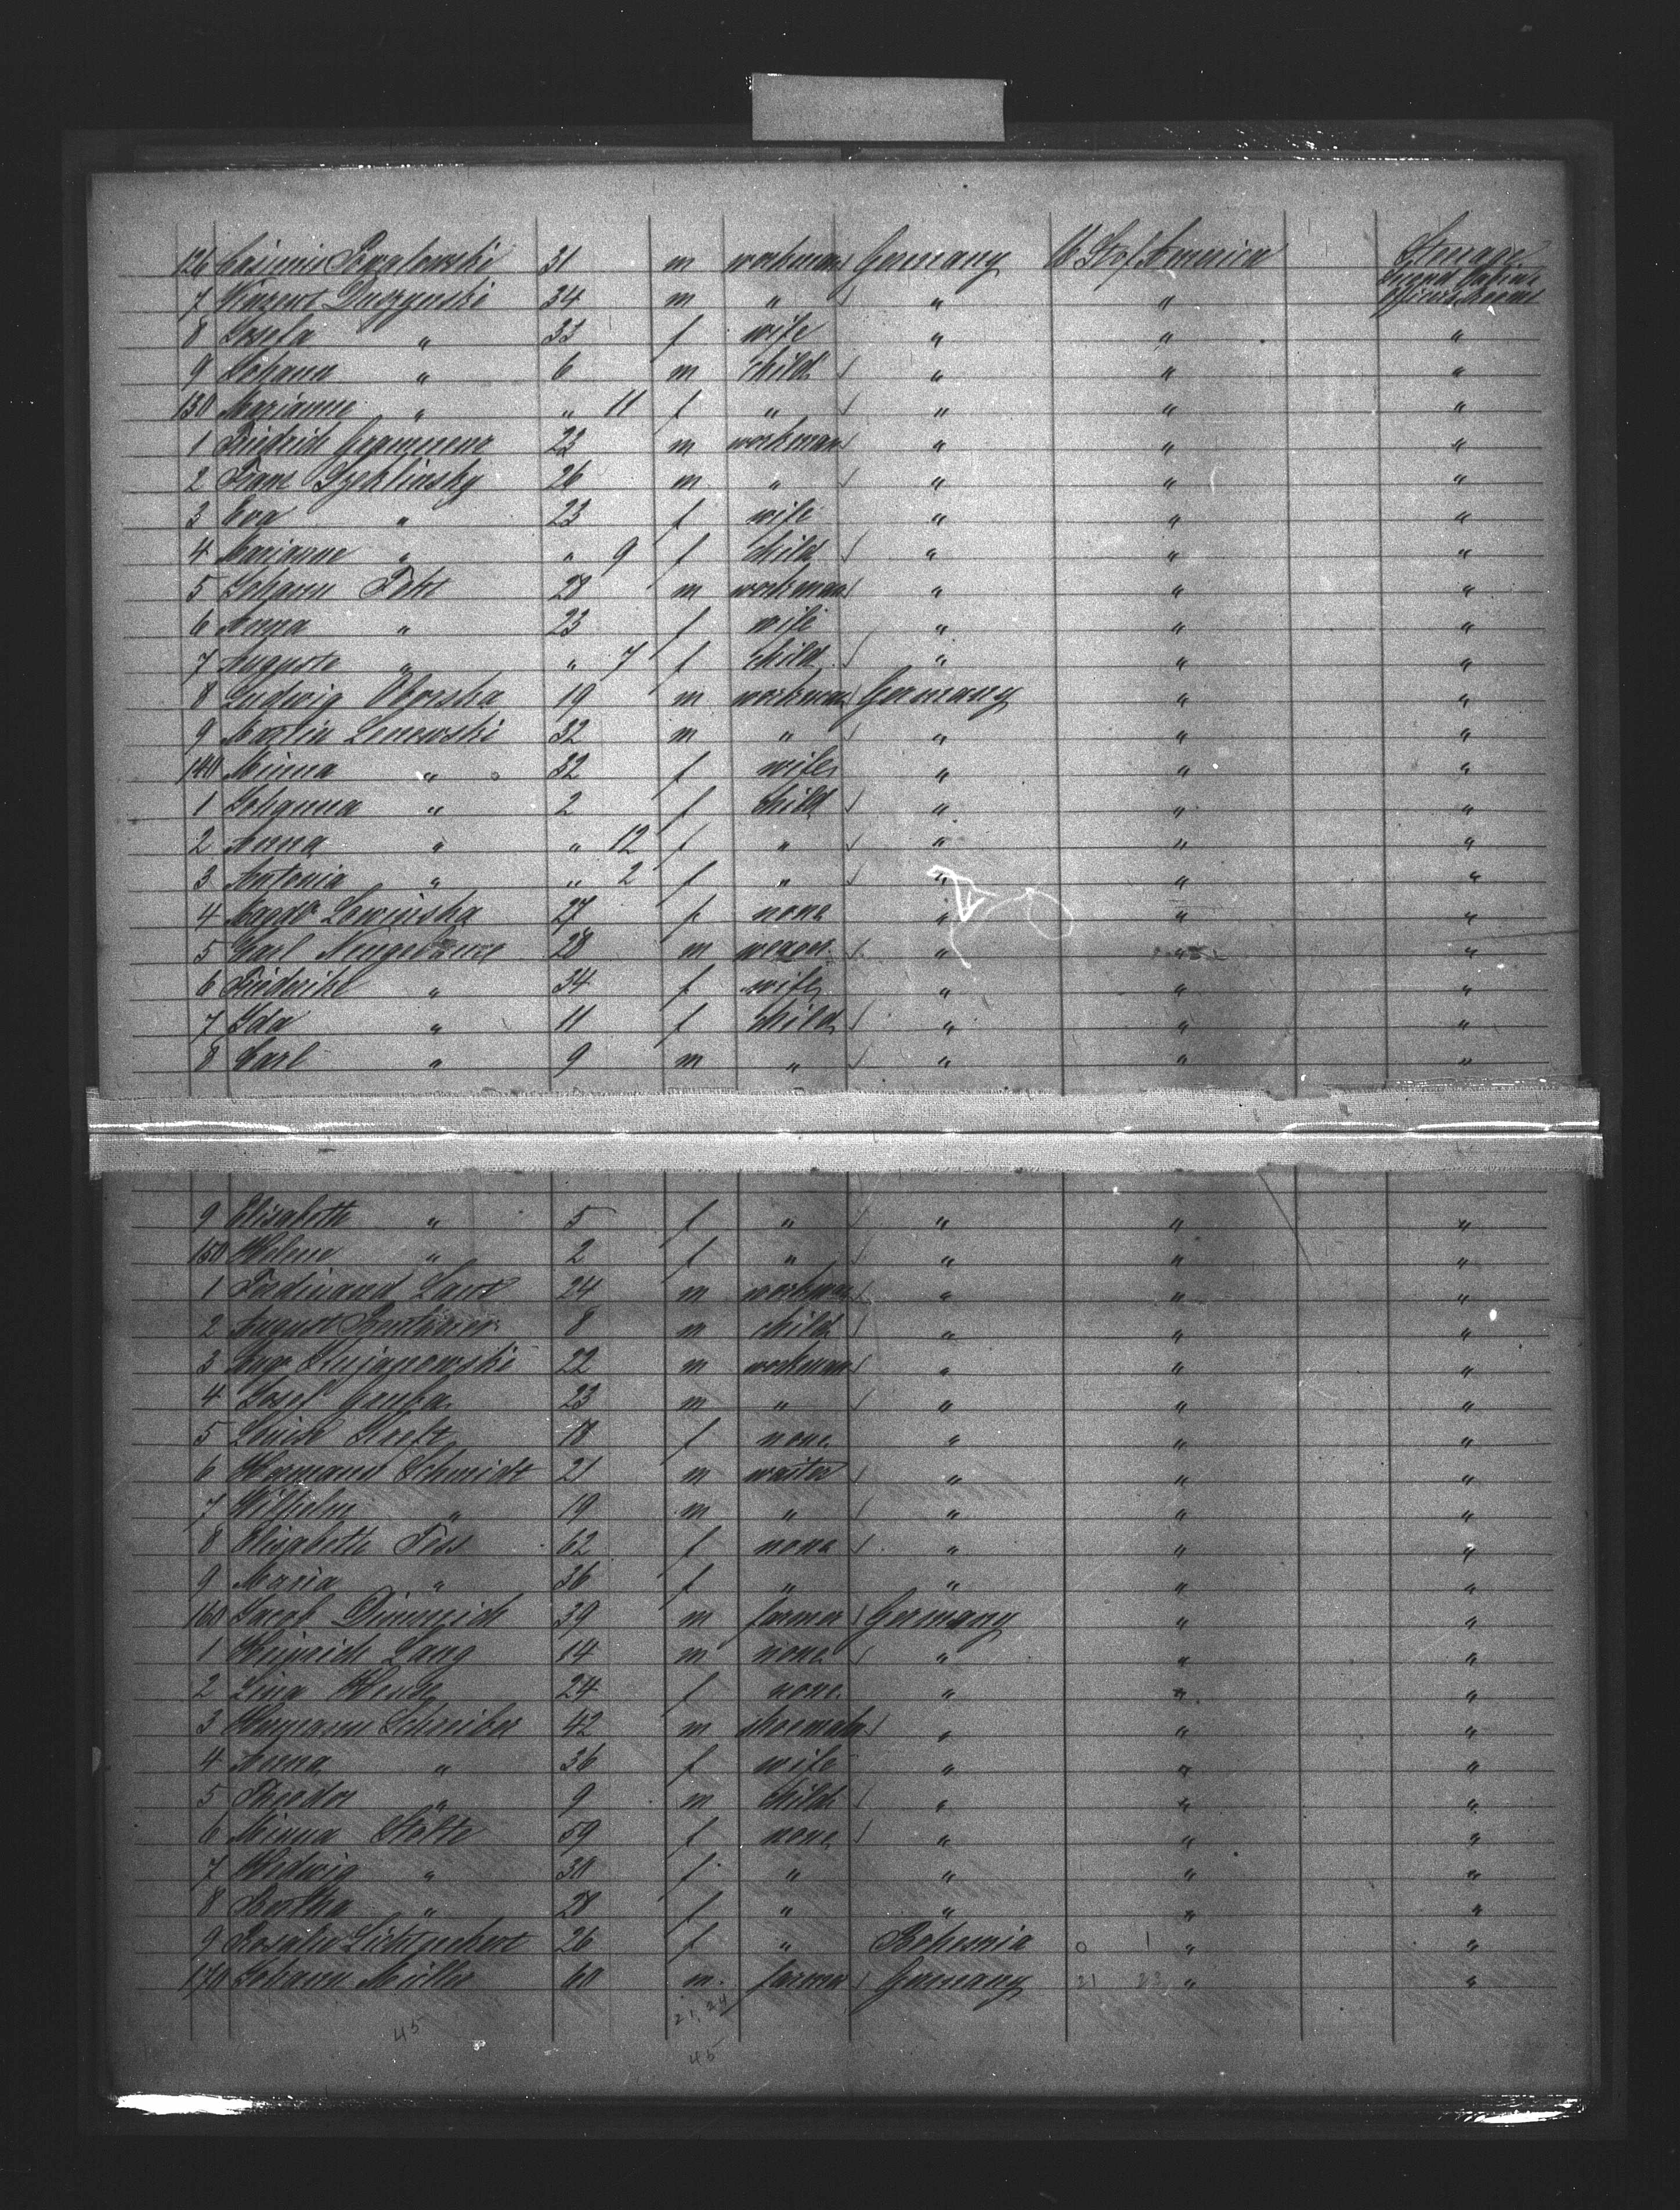 126 Casimir 31 m workman Germany U. St. of America Steerage
Second Cabine
7 Vinzent Duszynski 34 m " " " Officers Rooms
8 Josefa " 33 f wife " " "
9 Johann " 6 m child " " "
130 Marianne " " 11 f " " " "
1 Friedrich 23 m workman " " "
2 Franz 26 m " " " "
3 Eva " 23 f wife " " "
4 Marianne " " 9 f child " " "
5 Johann 28 m workman " " "
6 Anna " 23 f wife " " "
7 Auguste " " 7 f child " " "
8 Ludwig 19 m workman Germany " "
9 Martin Lenowski 32 m " " " "
140 Minna " 32 f wife " " "
1 Johanna " 2 f child " " "
2 Anna " " 12 f " " " "
3 Antonia " " 2 f " " " "
4 Magd. Lewinska 27 f none " " "
5 Carl 28 m " " "
6 Friederike " 34 f wife " " "
7 Ida " 11 f child " " "
8 Carl " 9 m " " " "
9 Elisabeth " 5 f " " " "
150 Helene " 2 f " " " "
1 Ferdinand 24 m workman " " "
2 August 8 m child " " "
3 22 m workman " " "
4 Josef 23 m " " " "
5 Louise 18 f none " " "
6 Hermann Schmidt 21 m waiter " " "
7 Wilhelm " 19 m " " " "
8 Elisabeth Fess 62 f none " " "
9 Maria " 36 f " " " "
160 Jacob 39 m farmer Germany " "
1 Heinrich Lang 14 m none " " "
2 Lina Hesse 24 f none " " "
3 Hermann Schreiber 42 m shoemaker " " "
4 Anna " 36 f wife " " "
5 Theodor " 9 m child " " "
6 Minna Stolte 59 f none " " "
7 Hedwig " 30 f " " " "
8 Bertha " 28 f " " " "
9 Rosalie 26 f " Bohemia 0 1 " "
170 Johann Müller 60 m. farmer Germany 21 23 " "
21, 24
45
45